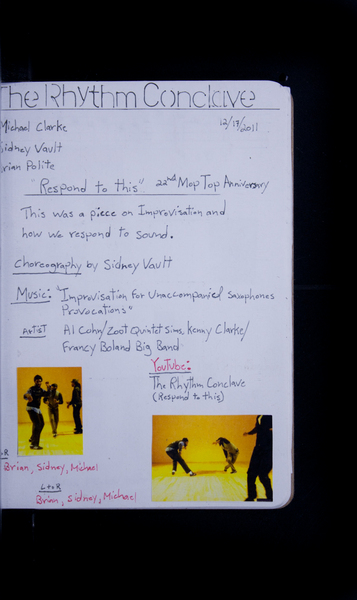 The Rhythm Conclave
Michael Clarke
12/17/2011
Sidney Vault
Brian Polite
"Respond to this" 22nd Mop Top Anniversary
This was a piece on Improvisation and
how we respond to sound.
Choreography by Sidney Vault
Music: "Improvisation for Unaccompanied Saxophones
Provocations"
Artist Al Cohn/Zoot Quintet Sims, Kenny Clarke/
Francy Boland Big Band
YouTube:
The Rhythm Conclave
(Respond to this)
L to R
Brian, Sidney, Michael
L to R
Brian, Sidney, Michael